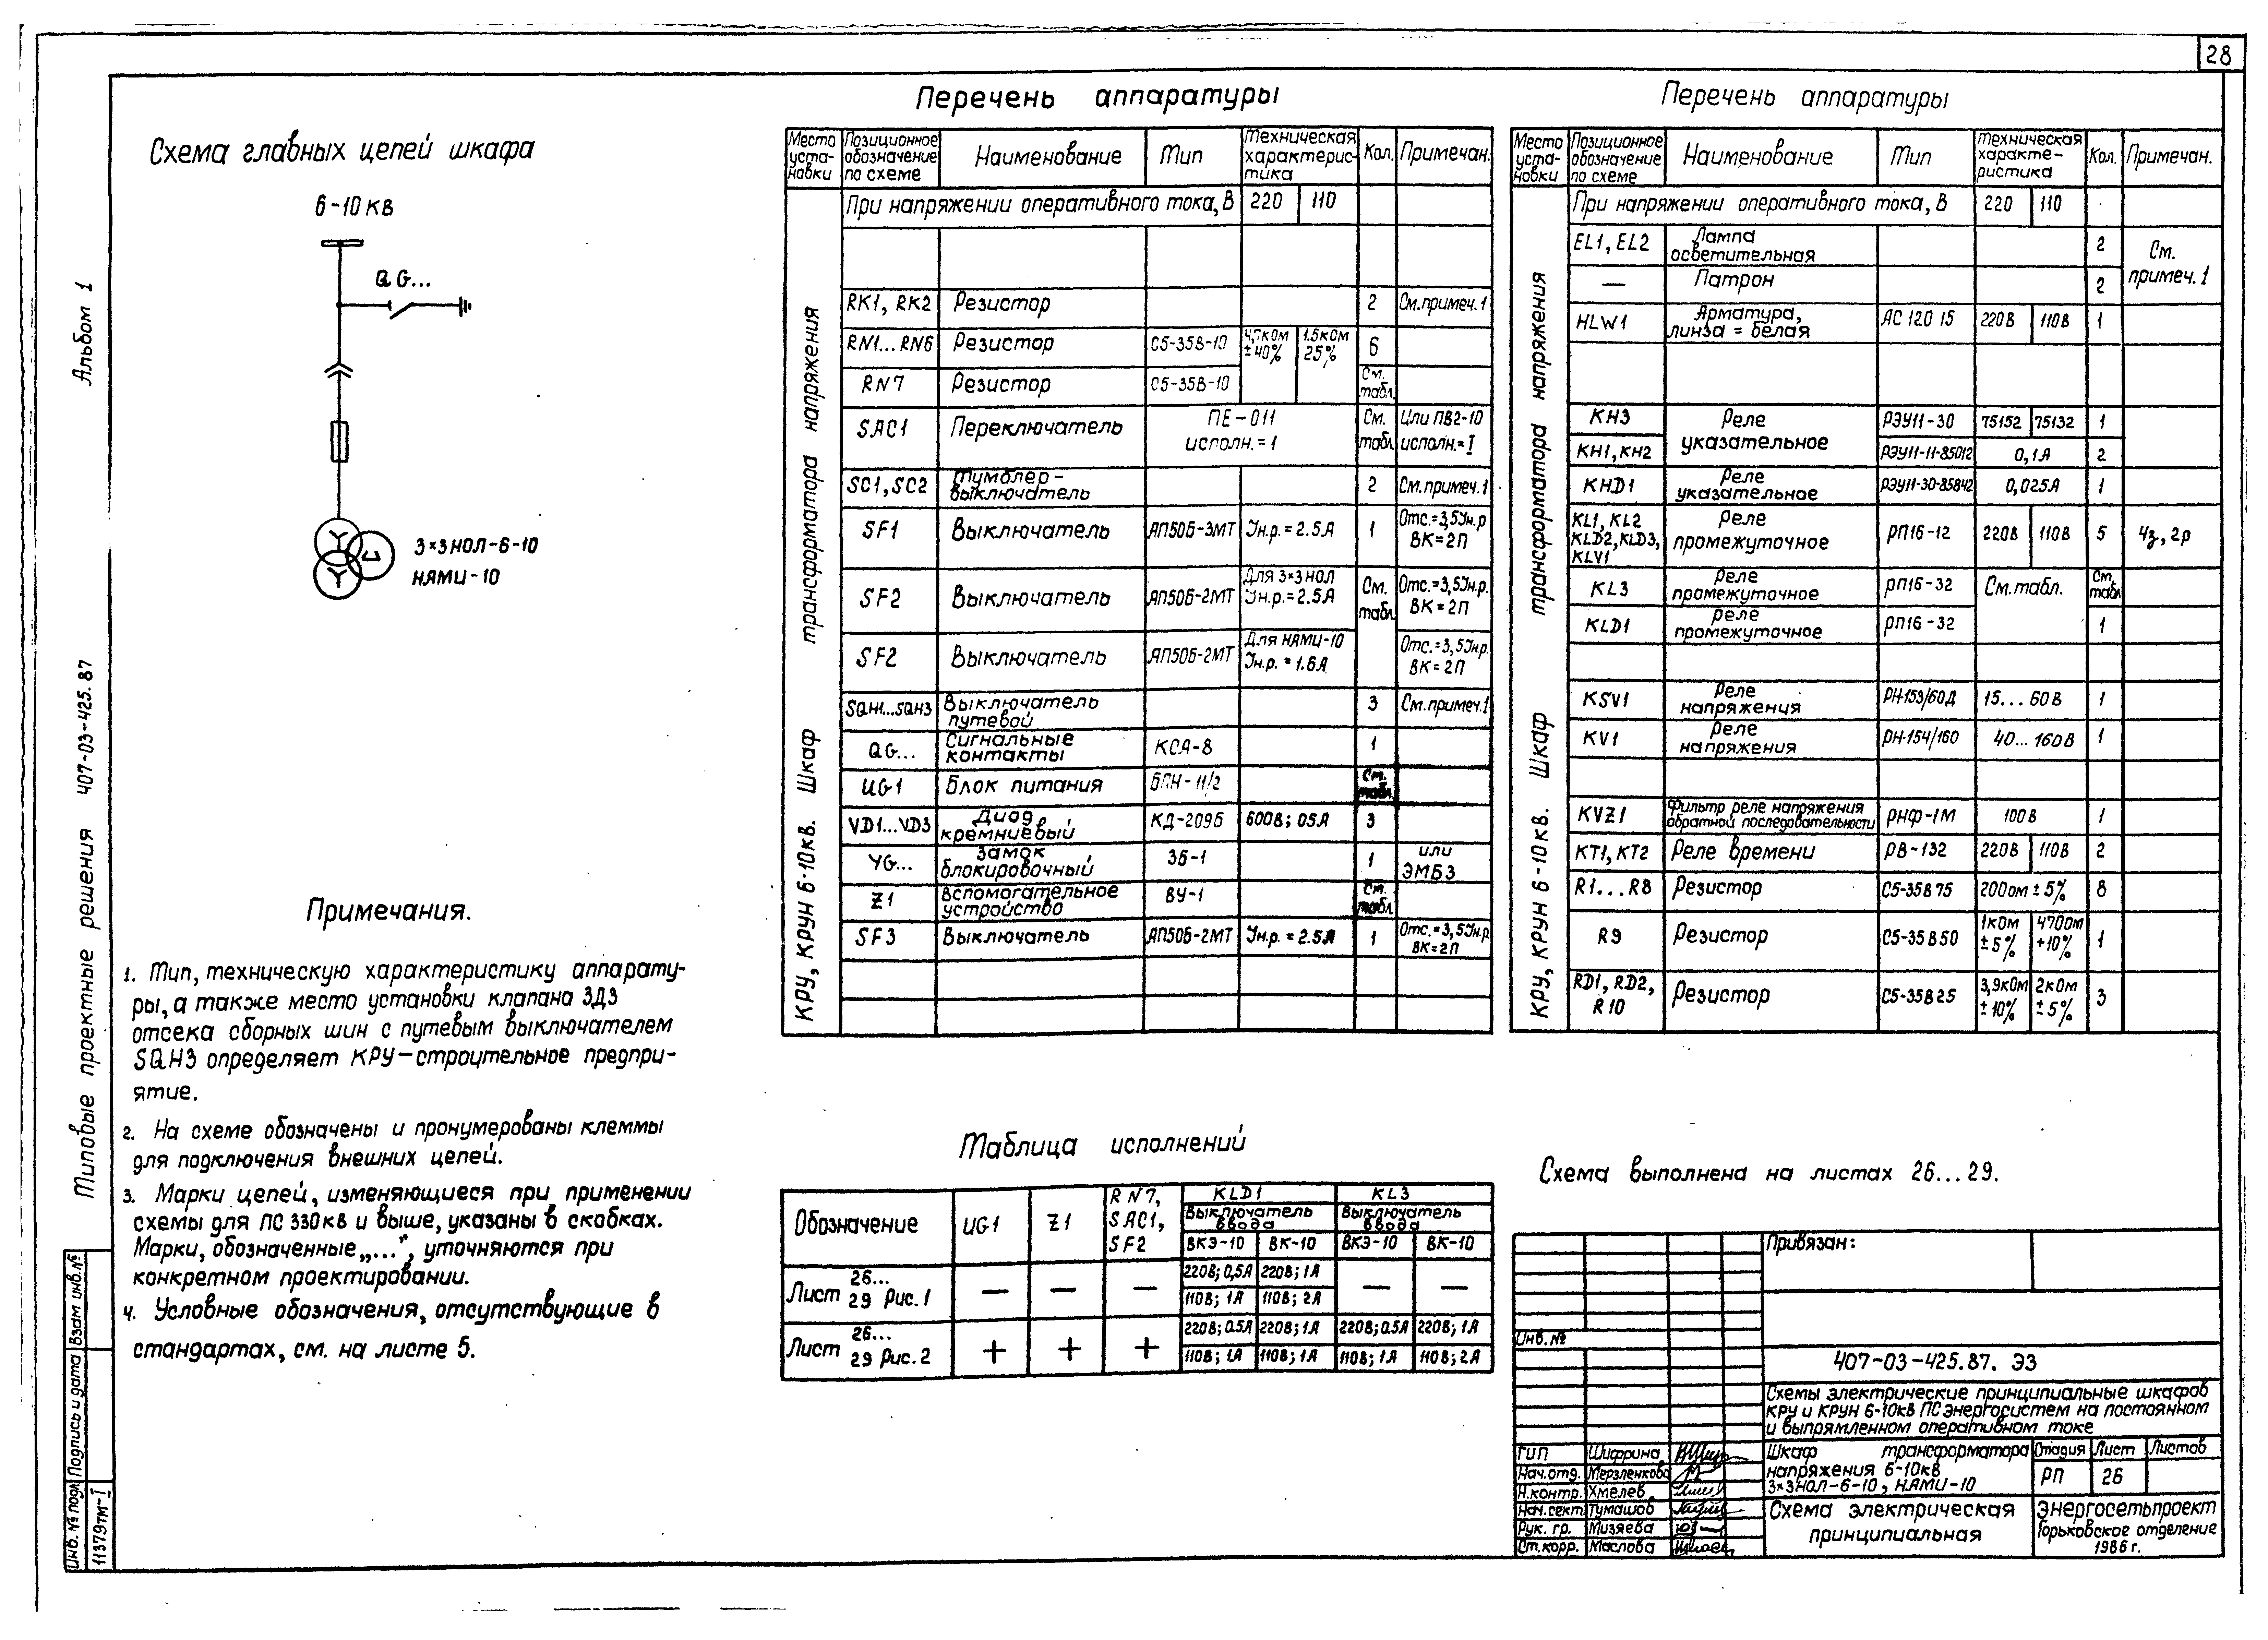 28
Альбом 1
Типовые проектные решения 407-03-425.87
Взам инв.№
Подпись и дата
Инв. № подл
11379тм-I
Схема главных цепей шкафа
6-10кв
QG...
3×3НОЛ-6-10
НАМИ-10
Примечания.
1. Тип, техническую характеристику аппарату-
ры, а также место установки клапана ЗДЗ
отсека сборных шин с путевым выключателем
SQH3 определяет КРУ-строительное предпри-
ятие.
2. На схеме обозначены и пронумерованы клеммы
для подключения внешних цепей.
3. Марки цепей, изменяющиеся при применении
схемы для ПС 330кв и выше, указаны в скобках.
Марки, обозначенные „...”, уточняются при
конкретном проектировании.
4. Условные обозначения, отсутствующие в
стандартах, см. на листе 5.
Перечень аппаратуры
Место уста-новки | Позиционное обозначение по схеме | Наименование | Тип | Техническая характерис-тика | Кол. | Примечан.
КРУ, КРУН 6-10кв. Шкаф трансформатора напряжения
При напряжении оперативного тока, В | 220 | 110
RK1, RK2 | Резистор | 2 | См.примеч.1
RN1...RN6 | Резистор | С5-35В-10 | 4,7кОм ±40% | 1.5кОм 25% | 6
RN7 | Резистор | С5-35В-10 | См. табл.
SAC1 | Переключатель | ПЕ-011 исполн.=1 | См. табл. | Или ПВ2-10 исполн.=I
SC1, SC2 | Тумблер-выключатель | 2 | См.примеч.1
SF1 | Выключатель | АП50Б-3МТ | Iн.р.=2.5А | 1 | Отс.=3,5Iн.р ВК=2П
SF2 | Выключатель | АП50Б-2МТ | Для 3×3НОЛ Iн.р.=2.5А | См. табл. | Отс.=3,5Iн.р. ВК=2П
SF2 | Выключатель | АП50Б-2МТ | Для НАМИ-10 Iн.р.=1.6А | Отс.=3,5Iн.р. ВК=2П
SQH1...SQH3 | Выключатель путевой | 3 | См.примеч.1
QG... | Сигнальные контакты | КСА-8 | 1
UG1 | Блок питания | БПН-11/2 | См. табл.
VD1...VD3 | Диод кремниевый | КД-209Б | 600В; 05А | 3
YG... | Замок блокировочный | ЗБ-1 | 1 | или ЭМБЗ
Z1 | Вспомогательное устройство | ВУ-1 | См. табл.
SF3 | Выключатель | АП50Б-2МТ | Iн.р.=2.5А | 1 | Отс.=3,5Iн.р ВК=2П
Перечень аппаратуры
Место уста-новки | Позиционное обозначение по схеме | Наименование | Тип | Техническая характе-ристика | Кол. | Примечан.
КРУ, КРУН 6-10кв. Шкаф трансформатора напряжения
При напряжении оперативного тока, В | 220 | 110
EL1, EL2 | Лампа осветительная | 2 | См. примеч.1
— | Патрон | 2
HLW1 | Арматура, линза = белая | АС 120 15 | 220В | 110В | 1
КН3 | Реле указательное | РЭУ11-30 | 75152 | 75132 | 1
КН1, КН2 | РЭУ11-11-85012 | 0,1А | 2
КНD1 | Реле указательное | РЭУ11-30-85842 | 0,025А | 1
KL1, KL2 KLD2, KLD3, KLV1 | Реле промежуточное | РП16-12 | 220В | 110В | 5 | 4з, 2р
KL3 | Реле промежуточное | РП16-32 | См.табл. | См. табл.
KLD1 | Реле промежуточное | РП16-32 | 1
KSV1 | Реле напряжения | РН-153/60Д | 15...60В | 1
KV1 | Реле напряжения | РН-154/160 | 40...160В | 1
KVZ1 | Фильтр реле напряжения обратной последовательности | РНФ-1М | 100В | 1
KT1, KT2 | Реле времени | РВ-132 | 220В | 110В | 2
R1...R8 | Резистор | С5-35В75 | 200ом ±5% | 8
R9 | Резистор | С5-35В50 | 1кОм ±5% | 470Ом +10% | 1
RD1, RD2, R10 | Резистор | С5-35В25 | 3,9кОм ±10% | 2кОм ±5% | 3
Таблица исполнений
Обозначение | UG1 | Z1 | RN7, SAC1, SF2 | KLD1 | KL3
Выключатель ввода | Выключатель ввода
ВКЭ-10 | ВК-10 | ВКЭ-10 | ВК-10
Лист 26... 29 Рис.1 | — | — | — | 220В; 0,5А | 220В; 1А | — | —
110В; 1А | 110В; 2А
Лист 26... 29 Рис.2 | + | + | + | 220В; 0.5А | 220В; 1А | 220В; 0.5А | 220В; 1А
110В; 1А | 110В; 1А | 110В; 1А | 110В; 2А
Схема выполнена на листах 26...29.
Привязан:
Инв. №
407-03-425.87. ЭЗ
Схемы электрические принципиальные шкафов
КРУ и КРУН 6-10кВ ПС энергосистем на постоянном
и выпрямленном оперативном токе
ГИП Шифрина
Нач.отд. Мерзленкова
Н.контр. Хмелев
Нач.сект. Тумашов
Рук. гр. Мизяева
Ст.корр. Маслова
Шкаф трансформатора
напряжения 6-10кв
3×3НОЛ-6-10, НАМИ-10
Стадия | Лист | Листов
РП | 26
Схема электрическая
принципиальная
Энергосетьпроект
Горьковское отделение
1986г.